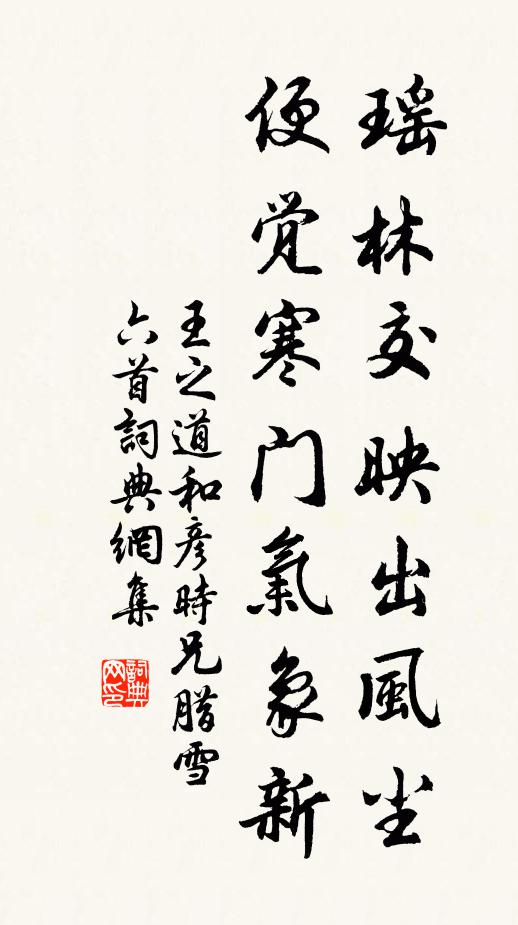 瑶林交映出風尘
便覚寒门氣象新
王之道和彦時兄腊雪
六首詞典網集
詞典
网印